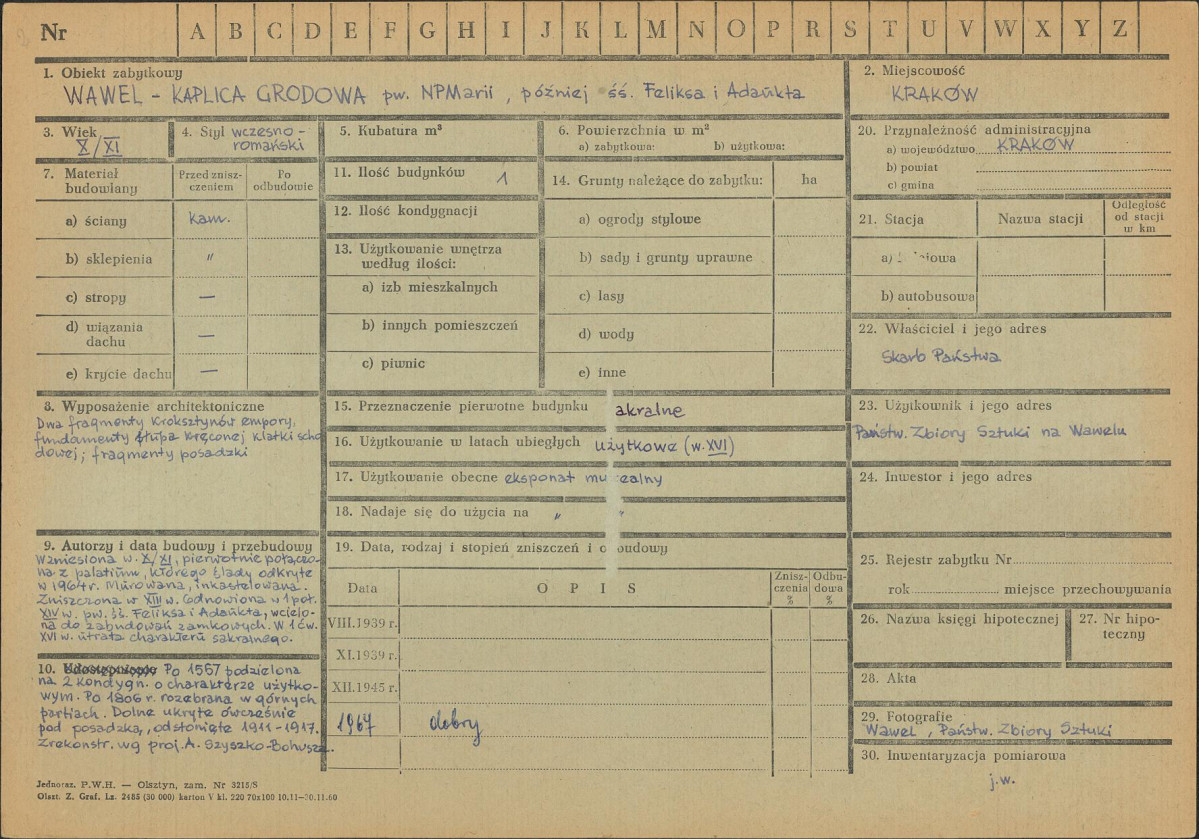 Nr A B C D E F G H I J K L M N O P R S T U V W X Y Z
1. Obiekt zabytkowy
WAWEL - KAPLICA GRODOWA pw. NPMarii, później śś. Feliksa i Adaukta
2. Miejscowość
KRAKÓW
3. Wiek
X/XI
4. Styl wczesno-
romański
5. Kubatura m³
6. Powierzchnia w m²
a) zabytkowa: b) użytkowa:
7. Materiał
budowiany
Przed znisz-
czeniem
Po
odbudowie
a) ściany kam.
b) sklepienia "
c) stropy —
d) wiązania
dachu —
e) krycie dachu —
8. Wyposażenie architektoniczne
Dwa fragmenty kroksztynów empory,
fundamenty słupa kręconej klatki scho
dowej; fragmenty posadzki
9. Autorzy i data budowy i przebudowy
Wzniesiona w. X/XI, pierwotnie połączo-
na z palatium, którego ślady odkryte
w 1964 r. Murowana, inkastelowana.
Zniszczona w XIII w. Odnowiona w 1 poł.
XIV w. pw. śś. Feliksa i Adaukta, wcielo-
na do zabudowań zamkowych. W 1 ćw.
XVI w. utrata charakteru sakralnego.
10. Po 1567 podzielona
na 2 kondygn. o charakterze użytko-
wym. Po 1806 r. rozebrana w górnych
partiach. Dolne ukryte ówcześnie
pod posadzką, odsłonięte 1911-1917.
Zrekonstr. wg proj. A. Szyszko-Bohusza.
11. Ilość budynków 1
12. Ilość kondygnacji
13. Użytkowanie wnętrza
według ilości:
a) izb mieszkalnych
b) innych pomieszczeń
c) piwnic
14. Grunty należące do zabytku: ha
a) ogrody stylowe
b) sady i grunty uprawne
c) lasy
d) wody
e) inne
15. Przeznaczenie pierwotne budynku akralne
16. Użytkowanie w latach ubiegłych użytkowe (w. XVI)
17. Użytkowanie obecne eksponat mu ealny
18. Nadaje się do użycia na " "
19. Data, rodzaj i stopień zniszczeń i o budowy
Data OPIS Znisz-
czenia
%
Odbu-
dowa
%
VIII.1939 r.
XI.1939 r.
XII.1945 r.
1967 dobry
20. Przynależność administracyjna
a) województwo KRAKÓW
b) powiat
c) gmina
21. Stacja Nazwa stacji Odległość
od stacji
w km
a) iowa
b) autobusowa
22. Właściciel i jego adres
Skarb Państwa
23. Użytkownik i jego adres
Państw. Zbiory Sztuki na Wawelu
24. Inwestor i jego adres
25. Rejestr zabytku Nr
rok miejsce przechowywania
26. Nazwa księgi hipotecznej
27. Nr hipo-
teczny
28. Akta
29. Fotografie
Wawel, Państw. Zbiory Sztuki
30. Inwentaryzacja pomiarowa
j.w.
Jednoraz. P.W.H. — Olsztyn, zam. Nr 3215/S
Olszt. Z. Graf. Lz. 2485 (30 000) karton V kl. 220 70x100 10.11—20.11.60